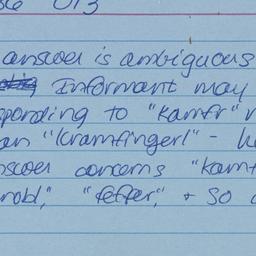 013
answer is ambiguous
Informant may
sponding to "Kamfr"
an "Kramfingerl" -
concerns
"feffer," + so